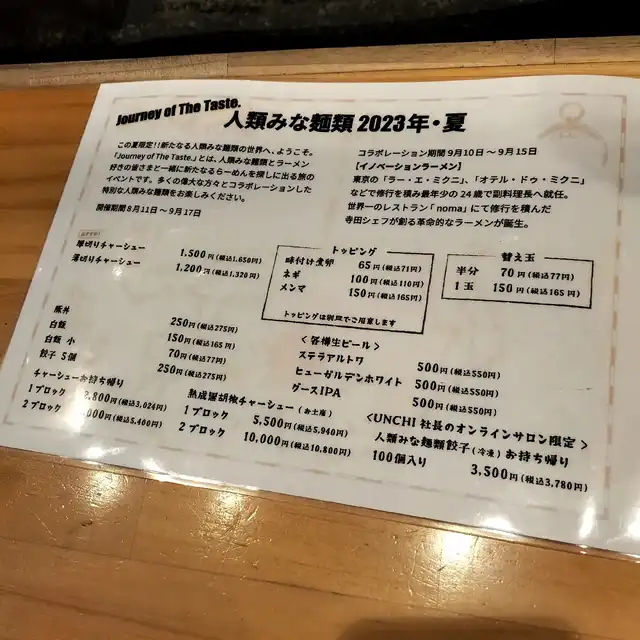 Journey of The Taste.
人類みな麺類 2023年・夏
この夏限定!!新たなる人類みな麺類の世界へ、ようこそ。
「Journey of The Taste.」とは、人類みな麺類とラーメン
好きの皆さまと一緒に新たなるらーめんを探しに出る旅の
イベントです。多くの偉大な方々とコラボレーションした
特別な人類みな麺類をお楽しみください。
開催期間8月11日～9月17日
コラボレーション期間 9月10日～9月15日
【イノベーションラーメン】
東京の「ラー・エ・ミクニ」、「オテル・ドゥ・ミクニ」
などで修行を積み最年少の24歳で副料理長へ就任。
世界一のレストラン「noma」にて修行を積んだ
寺田シェフが創る革命的なラーメンが誕生。
厚切りチャーシュー 1,500円(税込1,650円)
薄切りチャーシュー 1,200円(税込1,320円)
トッピング
味付け煮卵 65円(税込71円)
ネギ 100円(税込110円)
メンマ 150円(税込165円)
トッピングは別皿でご用意します
替え玉
半分 70円(税込77円)
1玉 150円(税込165円)
豚丼 250円(税込275円)
白飯 150円(税込165円)
白飯 小 70円(税込77円)
餃子 5個 250円(税込275円)
チャーシューお持ち帰り
1ブロック 2,800円(税込3,024円)
2ブロック 000円(税込5,400円)
熟成黒胡椒チャーシュー(お土産)
1ブロック 5,500円(税込5,940円)
2ブロック 10,000円(税込10,800円)
<各樽生ビール>
ステラアルトワ 500円(税込550円)
ヒューガルデンホワイト 500円(税込550円)
グースIPA 500円(税込550円)
<UNCHI 社長のオンラインサロン限定>
人類みな麺類餃子(冷凍)お持ち帰り
100個入り 3,500円(税込3,780円)